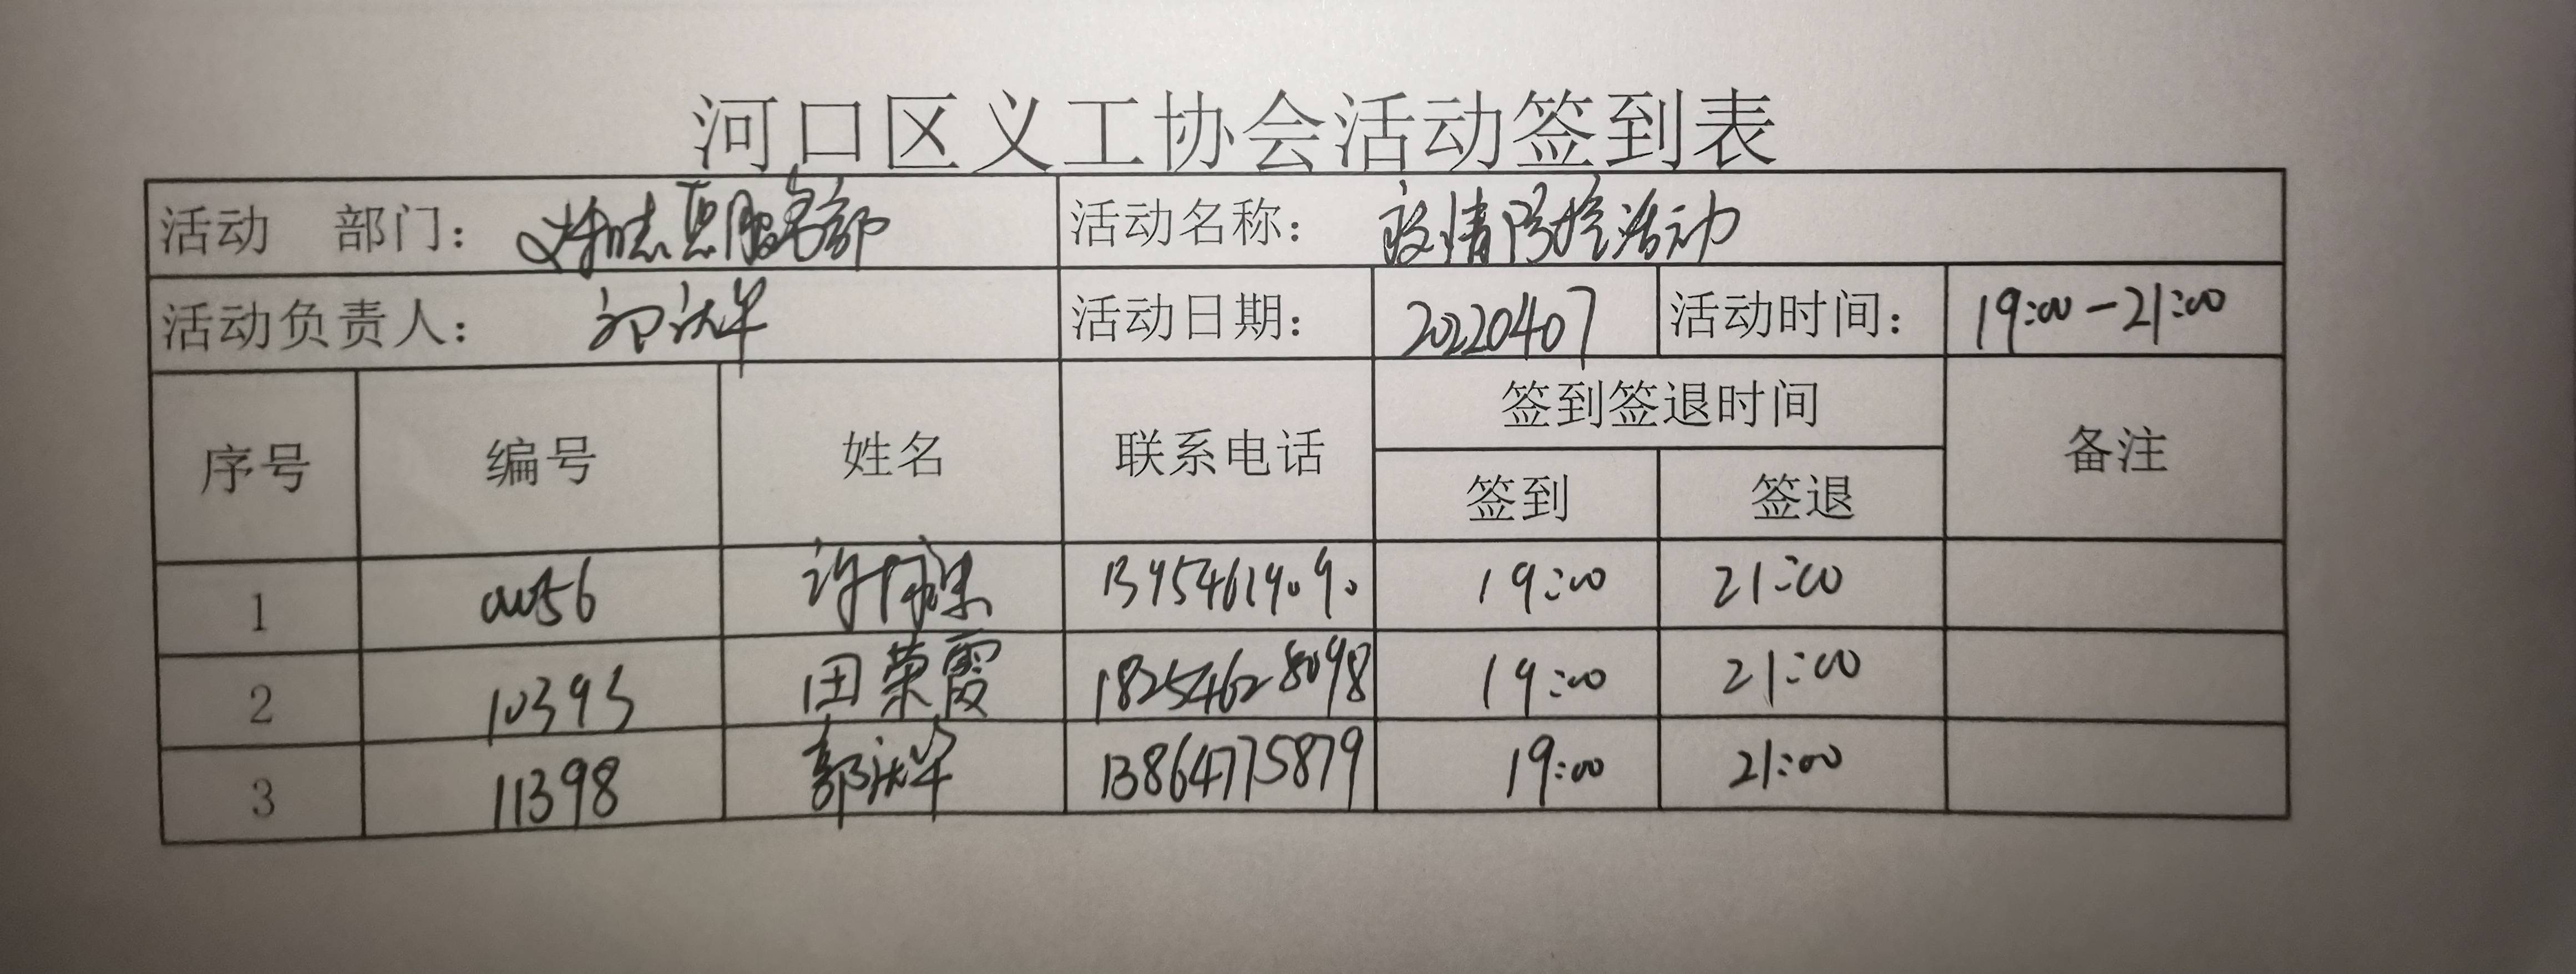 河口区义工协会活动签到表
活动 部门： 志愿服务部 活动名称： 疫情防控活动
活动负责人： 活动日期： 20220407 活动时间： 19:00-21:00
序号 编号 姓名 联系电话 签到签退时间 备注
签到 签退
1 00056 许 13954619090 19:00 21:00
2 10393 田荣霞 18254628098 19:00 21:00
3 11398 郭 13864775879 19:00 21:00